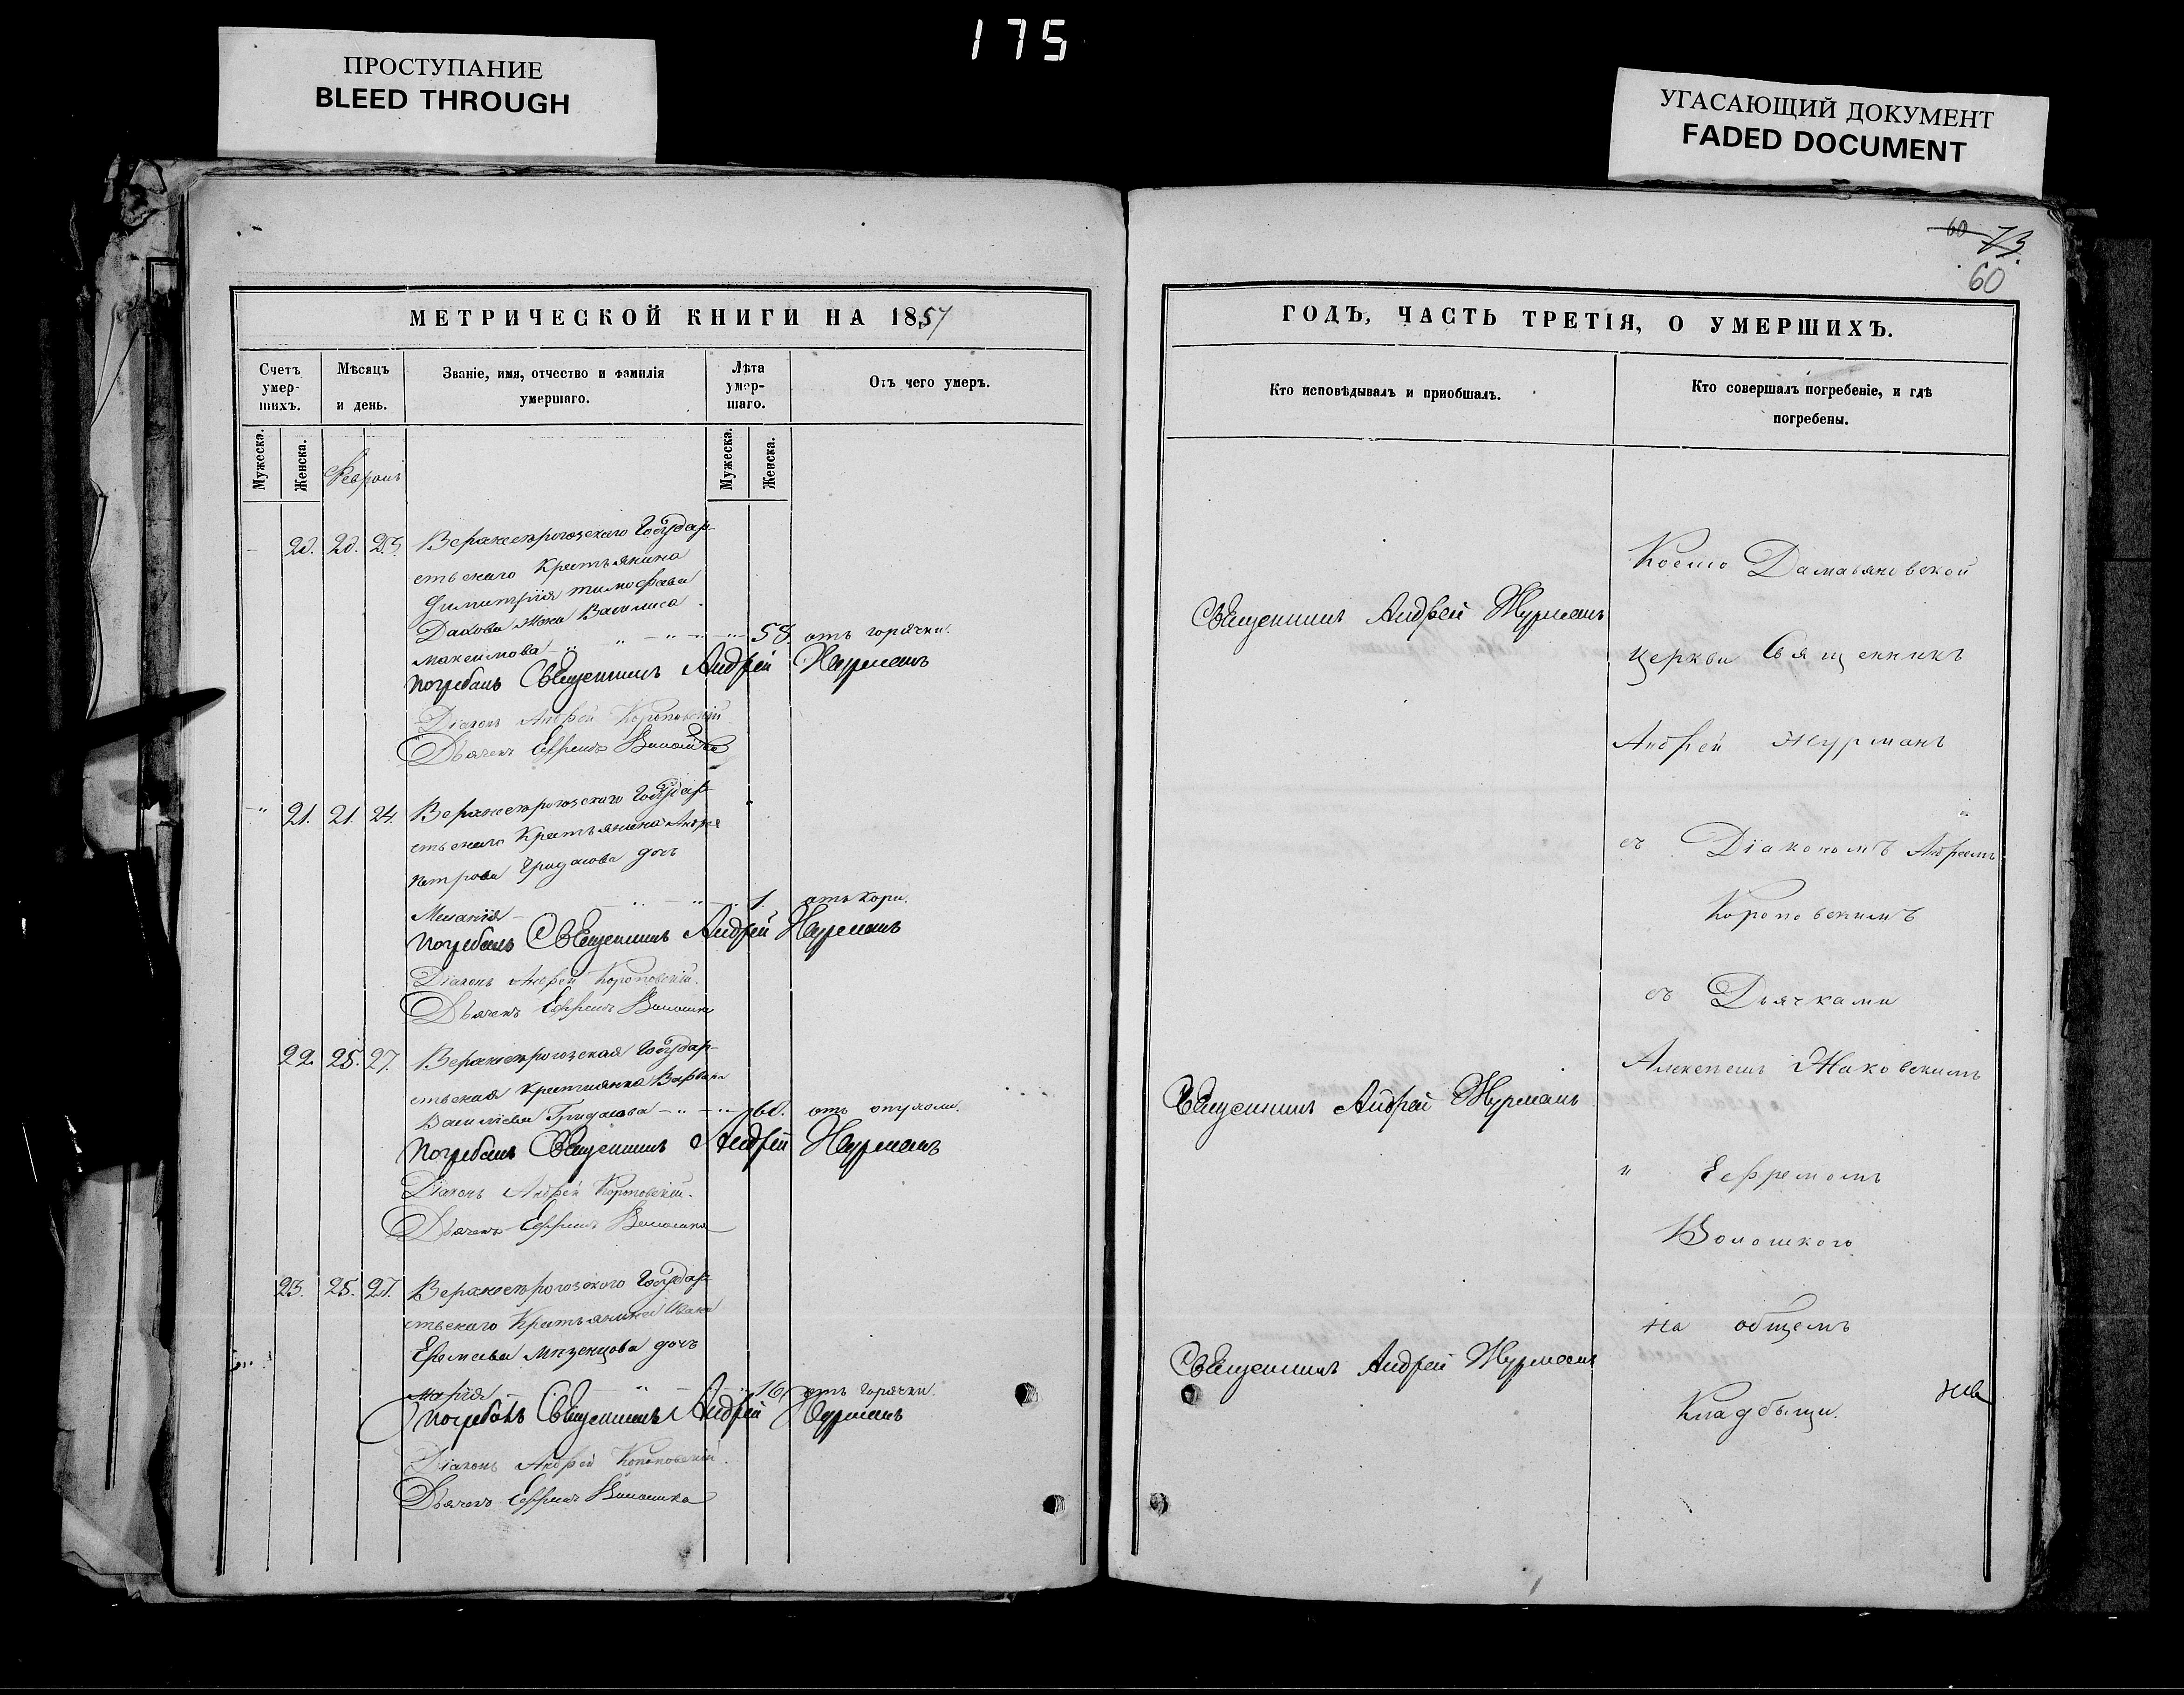 175
ПРОСТУПАНИЕ
BLEED THROUGH
УГАСАЮЩИЙ ДОКУМЕНТ
FADED DOCUMENT
МЕТРИЧЕСКОЙ КНИГИ НА 1857
Счетъ умер-шихъ.
Мѣсяцъ и день.
Званіе, имя, отчество и фамилія умершаго.
Лѣта умер-шаго.
Отъ чего умеръ.
Мужеска.
Женска.
Мужеска.
Женска.
20. 20. 23. Государ-
ственаго Крестьянина
Димитрія Тимофеева
жена Василиса
Максимова 58. отъ горячки.
Погребалъ Священникъ Андрей Журманъ
Діаконъ Андрей Короповскій
Дьячекъ Ефремъ Волошка
21. 21. 24. Государ-
ственаго Крестьянина Андрея
Петрова Гридасова дочь
Меланія 1. отъ кори.
Погребалъ Священникъ Андрей Журманъ
Діаконъ Андрей Короповскій.
Дьячекъ Ефремъ Волошка
22. 25. 27. Государ-
ственая Крестьянка Варвара
Василіева Гридасова 60. отъ опухоли.
Погребалъ Священникъ Андрей Журманъ
Діаконъ Андрей Короповскій.
Дьячекъ Ефремъ Волошка
23. 25. 27. Государ-
ственаго Крестьянина Ивана
дочь
Марія 16. отъ горячки.
Погребалъ Священникъ Андрей Журманъ
Діаконъ Андрей Короповскій.
Дьячекъ Ефремъ Волошка
60 73.
60
ГОДЪ, ЧАСТЬ ТРЕТІЯ, О УМЕРШИХЪ.
Кто исповѣдывалъ и приобшалъ.
Кто совершалъ погребеніе, и гдѣ погребены.
Священникъ Андрей Журманъ
Священникъ Андрей Журманъ
Священникъ Андрей Журманъ
Космо Дамаьяновской
Церкви Священникъ
Андрей Журманъ
съ Діакономъ Андреемъ
Короповскимъ
съ Дьячками
Алексеемъ Жаковскимъ
" Ефремомъ
Волошкого
на общемъ
Кладбыщи.